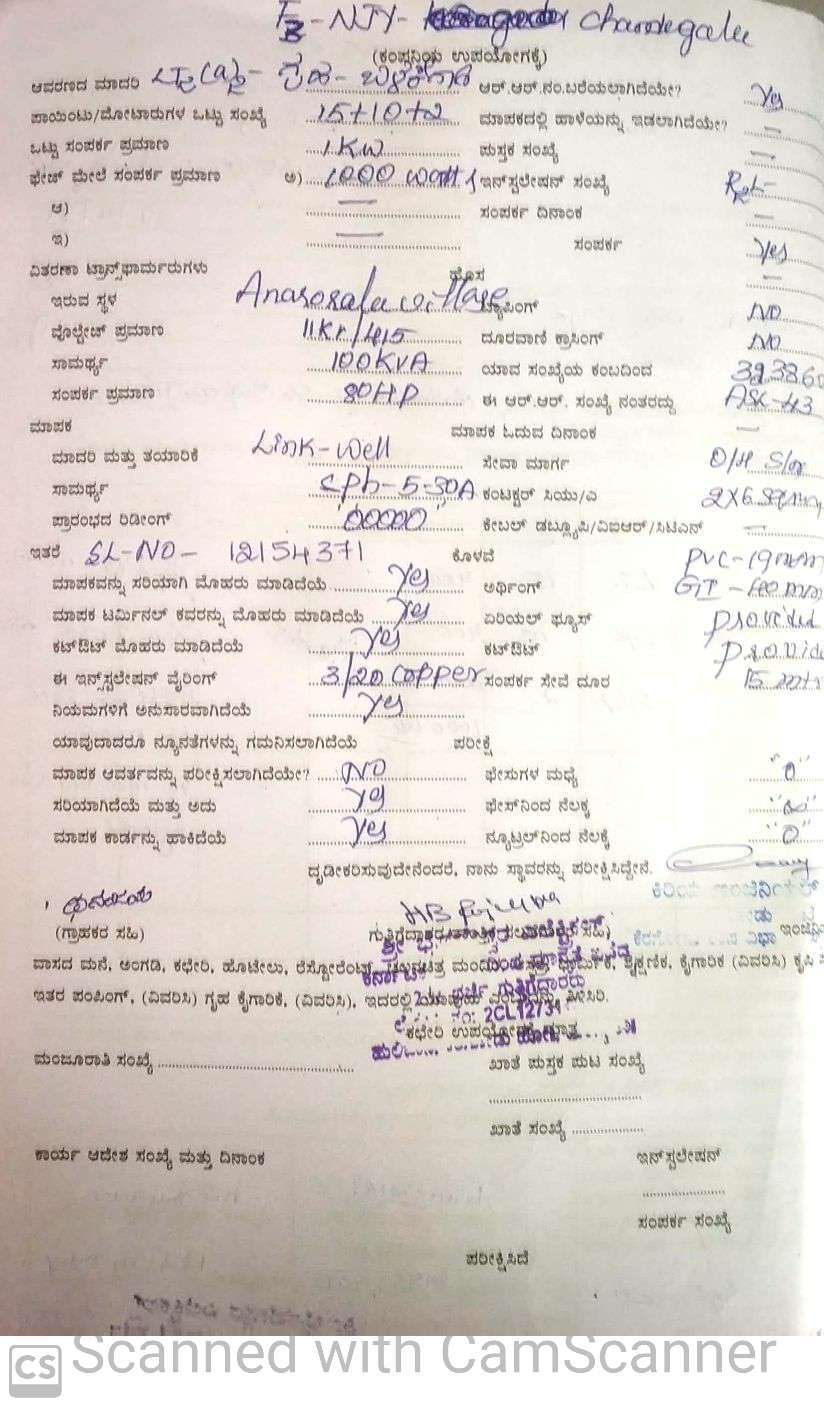 F3 - NJY - Chandegala
(ಕಂಪ್ನನಿಯ ಉಪಯೋಗಕ್ಕೆ)
ಆವರಣದ ಮಾದರಿ LT2(a)2- ಗೃಹ - ಬಳಕೆಗಾಗಿ ಆರ್.ಆರ್.ನಂ.ಬರೆಯಲಾಗಿದೆಯೇ? Yes
ಪಾಯಿಂಟು/ಮೋಟಾರುಗಳ ಒಟ್ಟು ಸಂಖ್ಯೆ 15+10+2 ಮಾಪಕದಲ್ಲಿ ಹಾಳೆಯನ್ನು ಇಡಲಾಗಿದೆಯೇ? —
ಒಟ್ಟು ಸಂಪರ್ಕ ಪ್ರಮಾಣ 1 KW ಪುಸ್ತಕ ಸಂಖ್ಯೆ —
ಫೇಜ್ ಮೇಲೆ ಸಂಪರ್ಕ ಪ್ರಮಾಣ ಅ) 1000 watt ಇನ್‌ಸ್ಟಲೇಷನ್ ಸಂಖ್ಯೆ
ಆ) — ಸಂಪರ್ಕ ದಿನಾಂಕ —
ಇ) — ಸಂಪರ್ಕ Yes
ವಿತರಣಾ ಟ್ರಾನ್ಸ್‌ಫಾರ್ಮರುಗಳು ಹೊಸ —
ಇರುವ ಸ್ಥಳ village ಟ್ಯಾಪಿಂಗ್ NO
ವೊಲ್ಟೇಜ್ ಪ್ರಮಾಣ 11Kv/415 ದೂರವಾಣಿ ಕ್ರಾಸಿಂಗ್ NO
ಸಾಮರ್ಥ್ಯ 100KVA ಯಾವ ಸಂಖ್ಯೆಯ ಕಂಬದಿಂದ
ಸಂಪರ್ಕ ಪ್ರಮಾಣ 80HP ಈ ಆರ್.ಆರ್. ಸಂಖ್ಯೆ ನಂತರದ್ದು ASK-43
ಮಾಪಕ ಮಾಪಕ ಓದುವ ದಿನಾಂಕ —
ಮಾದರಿ ಮತ್ತು ತಯಾರಿಕೆ Link-well ಸೇವಾ ಮಾರ್ಗ O/H
ಸಾಮರ್ಥ್ಯ 5-30A ಕಂಟಕ್ಟರ್ ಸಿಯು/ಎ 2X6
ಪ್ರಾರಂಭದ ರಿಡೀಂಗ್ "00000" ಕೇಬಲ್ ಡಬ್ಲ್ಯೂಪಿ/ವಿಐಆರ್/ಸಿಟಿಎಸ್ —
ಇತರೆ SL-NO- 12154371 ಕೊಳವೆ PVC-19mm
ಮಾಪಕವನ್ನು ಸರಿಯಾಗಿ ಮೊಹರು ಮಾಡಿದೆಯೆ Yes ಅರ್ಥಿಂಗ್ GI
ಮಾಪಕ ಟರ್ಮಿನಲ್ ಕವರನ್ನು ಮೊಹರು ಮಾಡಿದೆಯೇ Yes ಏರಿಯಲ್ ಫ್ಯೂಸ್ provided
ಕಟ್‌ಔಟ್ ಮೊಹರು ಮಾಡಿದೆಯೆ Yes ಕಟ್‌ಔಟ್ provide
ಈ ಇನ್‌ಸ್ಟಲೇಷನ್ ವೈರಿಂಗ್ 3/20 Copper ಸಂಪರ್ಕ ಸೇವೆ ದೂರ 15 mtr
ನಿಯಮಗಳಿಗೆ ಅನುಸಾರವಾಗಿದೆಯೆ Yes
ಯಾವುದಾದರೂ ನ್ಯೂನತೆಗಳನ್ನು ಗಮನಿಸಲಾಗಿದೆಯೆ ಪರೀಕ್ಷೆ
ಮಾಪಕ ಆವರ್ತವನ್ನು ಪರೀಕ್ಷಿಸಲಾಗಿದೆಯೇ? NO ಫೇಸುಗಳ ಮಧ್ಯೆ "0"
ಸರಿಯಾಗಿದೆಯೆ ಮತ್ತು ಅದು Yes ಫೇಸ್‌ನಿಂದ ನೆಲಕ್ಕೆ
ಮಾಪಕ ಕಾರ್ಡನ್ನು ಹಾಕಿದೆಯೆ Yes ನ್ಯೂಟ್ರಲ್‌ನಿಂದ ನೆಲಕ್ಕೆ "0"
ದೃಢೀಕರಿಸುವುದೇನೆಂದರೆ, ನಾನು ಸ್ಥಾವರನ್ನು ಪರೀಕ್ಷಿಸಿದ್ದೇನೆ.
ಕಿರಿಯ ಇಂಜಿನಿಯರ್
(ಗ್ರಾಹಕರ ಸಹಿ) ಸಹಿ)
ವಾಸದ ಮನೆ, ಅಂಗಡಿ, ಕಛೇರಿ, ಹೊಟೇಲು, ರೆಸ್ಟೋರೆಂಟ್ ಶೈಕ್ಷಣಿಕ, ಕೈಗಾರಿಕ (ವಿವರಿಸಿ) ಕೃಷಿ
ಇತರ ಪಂಪಿಂಗ್, (ವಿವರಿಸಿ) ಗೃಹ ಕೈಗಾರಿಕೆ, (ವಿವರಿಸಿ), ಇದರಲ್ಲಿ
2CL12731
ಕಛೇರಿ
ಮಂಜೂರಾತಿ ಸಂಖ್ಯೆ ಖಾತೆ ಪುಸ್ತಕ ಪುಟ ಸಂಖ್ಯೆ
ಖಾತೆ ಸಂಖ್ಯೆ
ಕಾರ್ಯ ಆದೇಶ ಸಂಖ್ಯೆ ಮತ್ತು ದಿನಾಂಕ ಇನ್‌ಸ್ಟಲೇಷನ್
ಸಂಪರ್ಕ ಸಂಖ್ಯೆ
ಪರೀಕ್ಷಿಸಿದೆ
CS Scanned with CamScanner